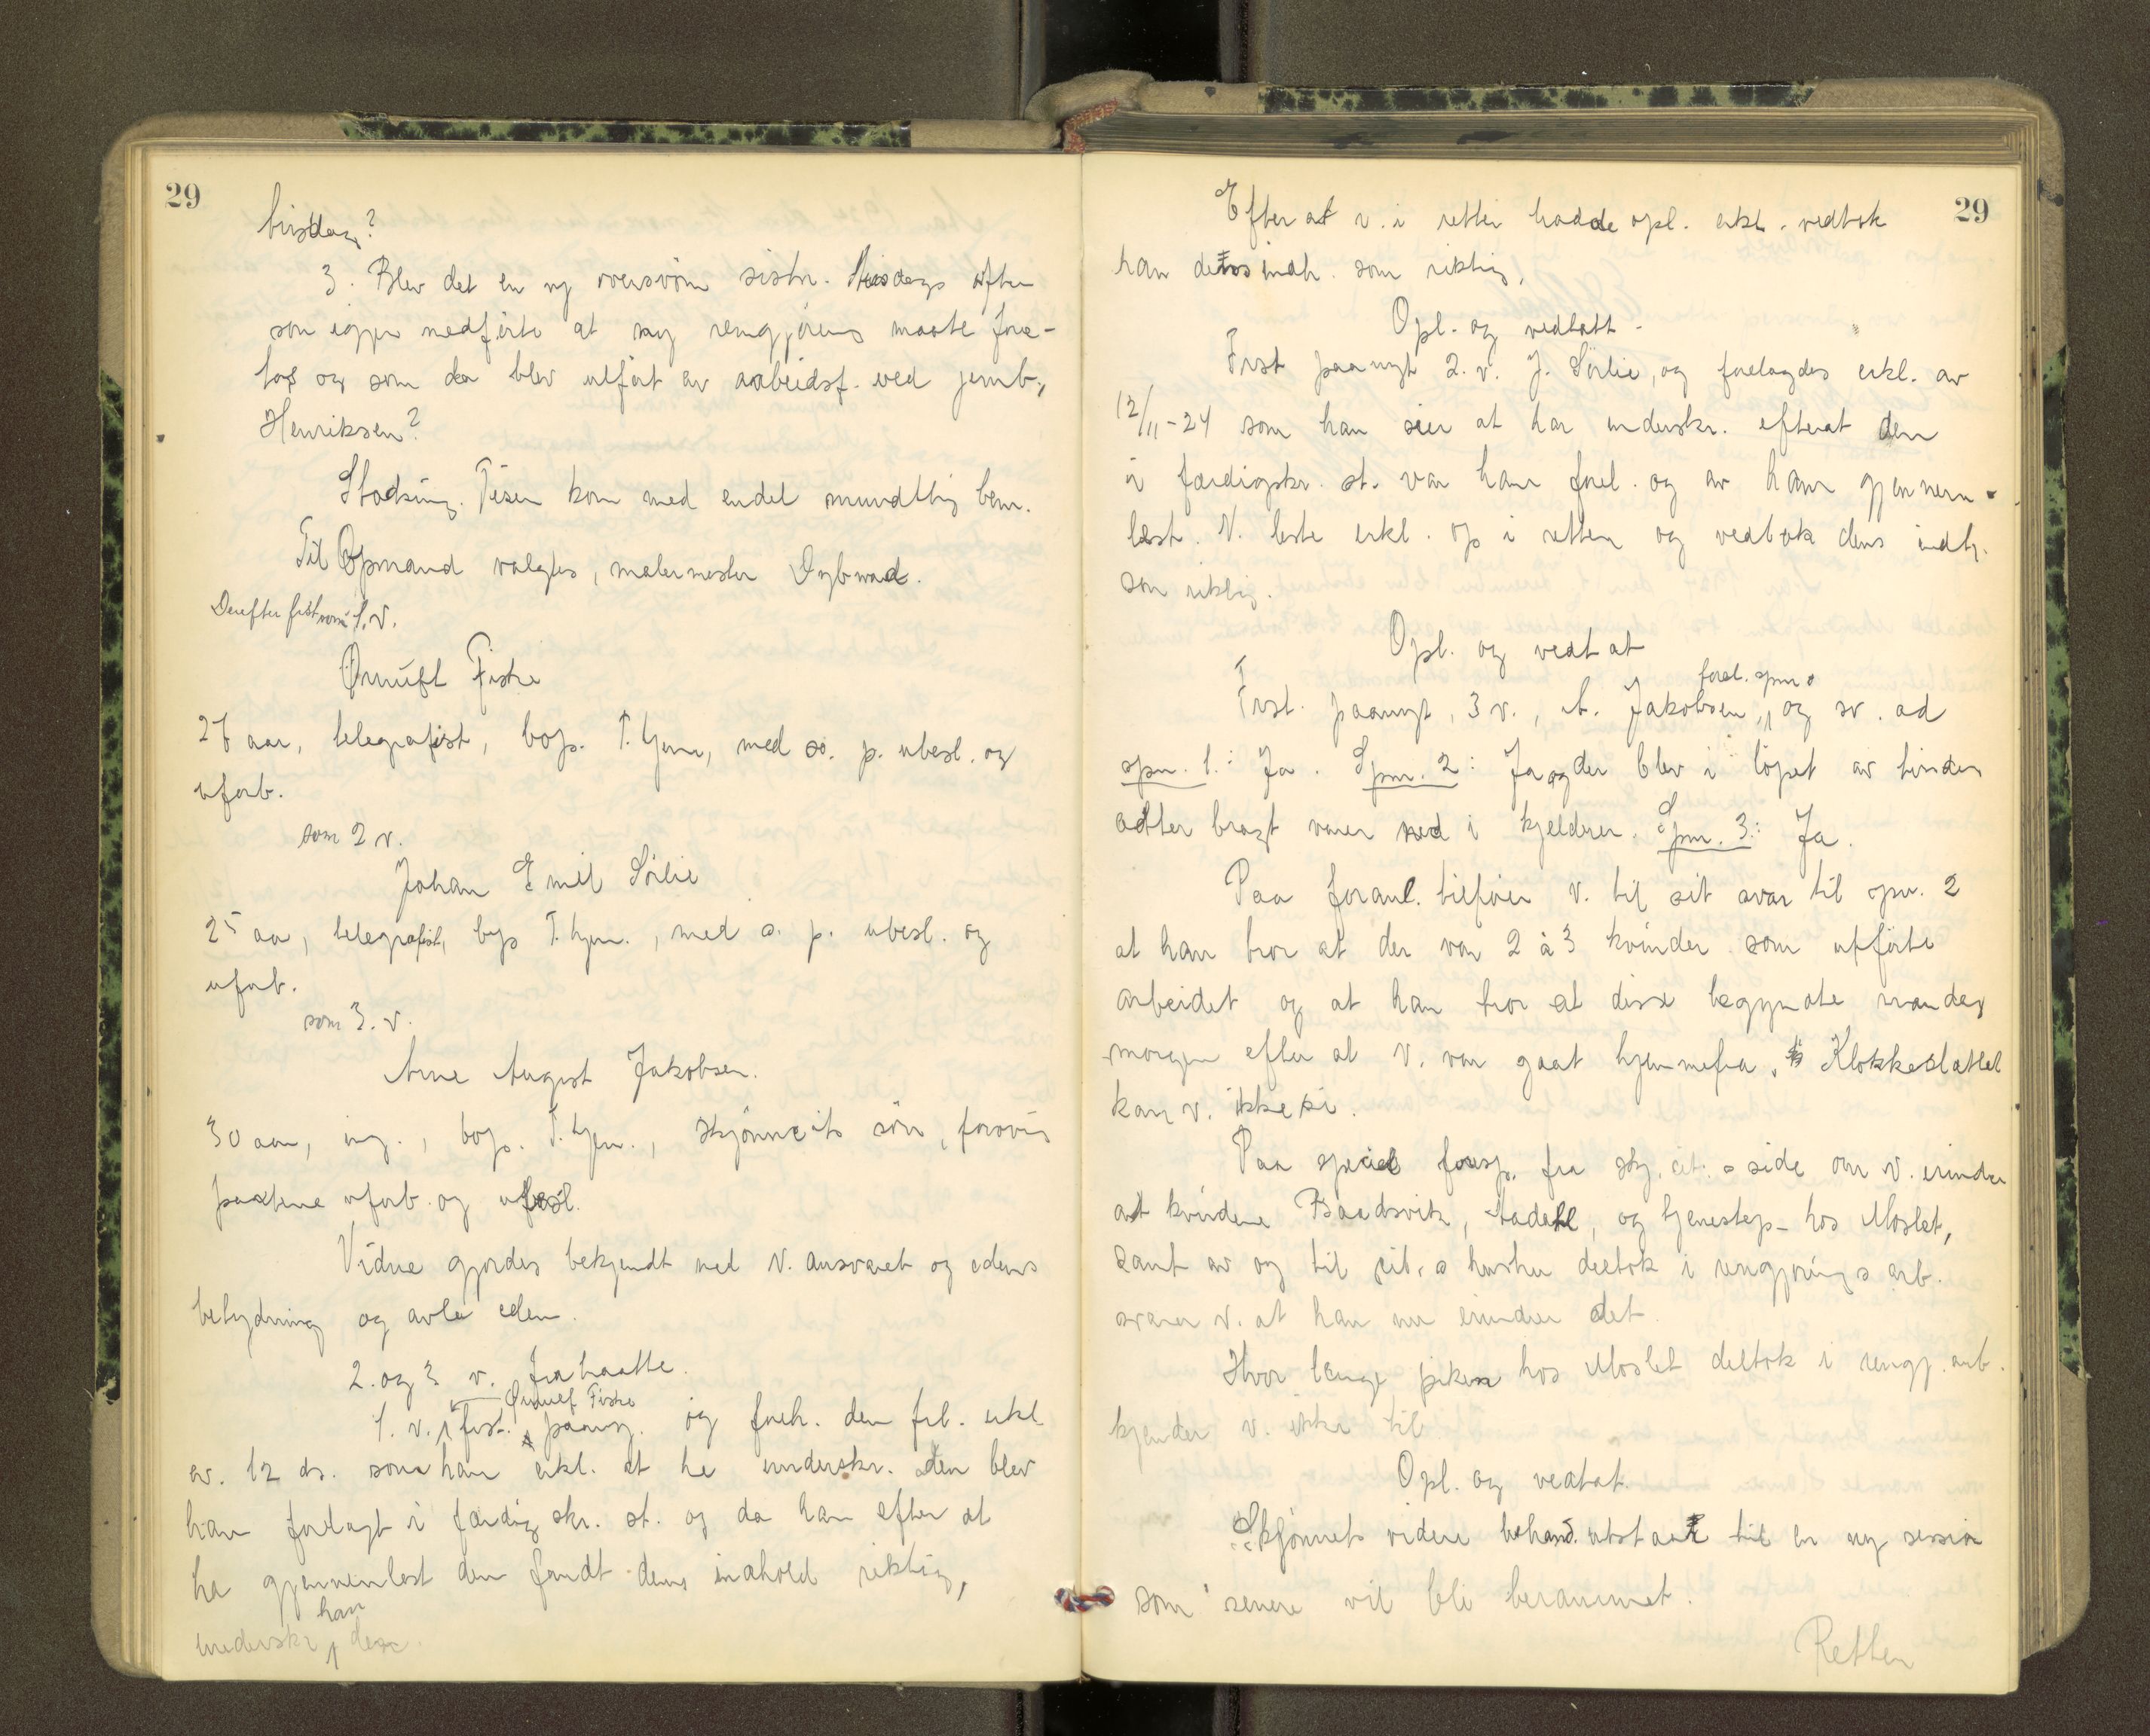 29
tirsdag?
3. Blev det en ny oversvöm. sistn. tirsdags aften
som igjen medførte at ny rengjörings maate fore-
tas og som da blev utført av arbeidsf. ved jernb.,
Henriksen?
Stadsing. Tiser kom med endel mundtlig bem.
Til Opmand valgtes, malermester Dybwad.
Derefter frst. som 1. v.
Ørnulf Fiske
27 aar, telegrafist, bop. T.hjem, med s. p. ubesl. og
uforb.
som 2 v.
Johan Emil Sörlie
25 aar, telegrafist, bop T.hjem., med s. p. ubesl. og
uforb.
som 3. v.
Arne August Jakobsen.
30 aar, ing., bop. T.hjem., skjønnscits sön, forövrig
partene uforb. og ubesl.
Vidne gjordes bekjendt med v. ansvaret og edens
betydning og avla eden.
2. og 3 v. fratraatte.
Ørnulf Fiske
1. v. frst. paany. og foreh. den frl. erkl.
av. 12 ds. som han erkl. at ha underskr. den blev
ham forelagt i færdig skr. st. og da han efter at
ha gjennemlest den fandt dens indhold riktig,
han
underskr. den.
29
Efter at v. i retten hadde opl. erkl. vedtok
han dens indh. som riktig.
Opl. og vedtatt.
Frst paanyt 2. v. J. Sörlie, og forelagdes erkl. av
12/11-24 som han sier at har underskr. efterat den
i færdigskr. st. var ham forel. og av ham gjennem-
lest. V. leste erkl. op i retten og vedtok dens indh.
som riktig.
Opl. og vedtat
forel. spm.
Frst. paanyt, 3 v., A. Jakobsen, og sv. ad
spm. 1.: Ja. Spm. 2: Ja og der blev i löpet av tirsdag
atter bragt varer ned i kjelderen. Spm. 3: Ja.
Paa foranl. tilföier v. til sit svar til spm. 2
at han tror at der var 2 à 3 kvinder som utförte
arbeidet og at han tror at disse begyndte mandag
morgen efter at v. var gaat hjemmefra. Klokkeslættet
kan v. ikke si.
Paa speciel foresp. fra skj. cit.s side om v. erindrer
at kvindene Baadsvik, Aadahl, og tjenestep. hos Moslet,
samt av og til cit.s hustru deltok i rengjörings arb.
svarer v. at han nu erindrer det.
Hvor længe piken hos Moslet deltok i rengj. arb.
kjender v. ikke til
Opl. og vedtat.
Skjönnets videre behand. utstaar til en ny session
som senere vil bli berammet.
Retten